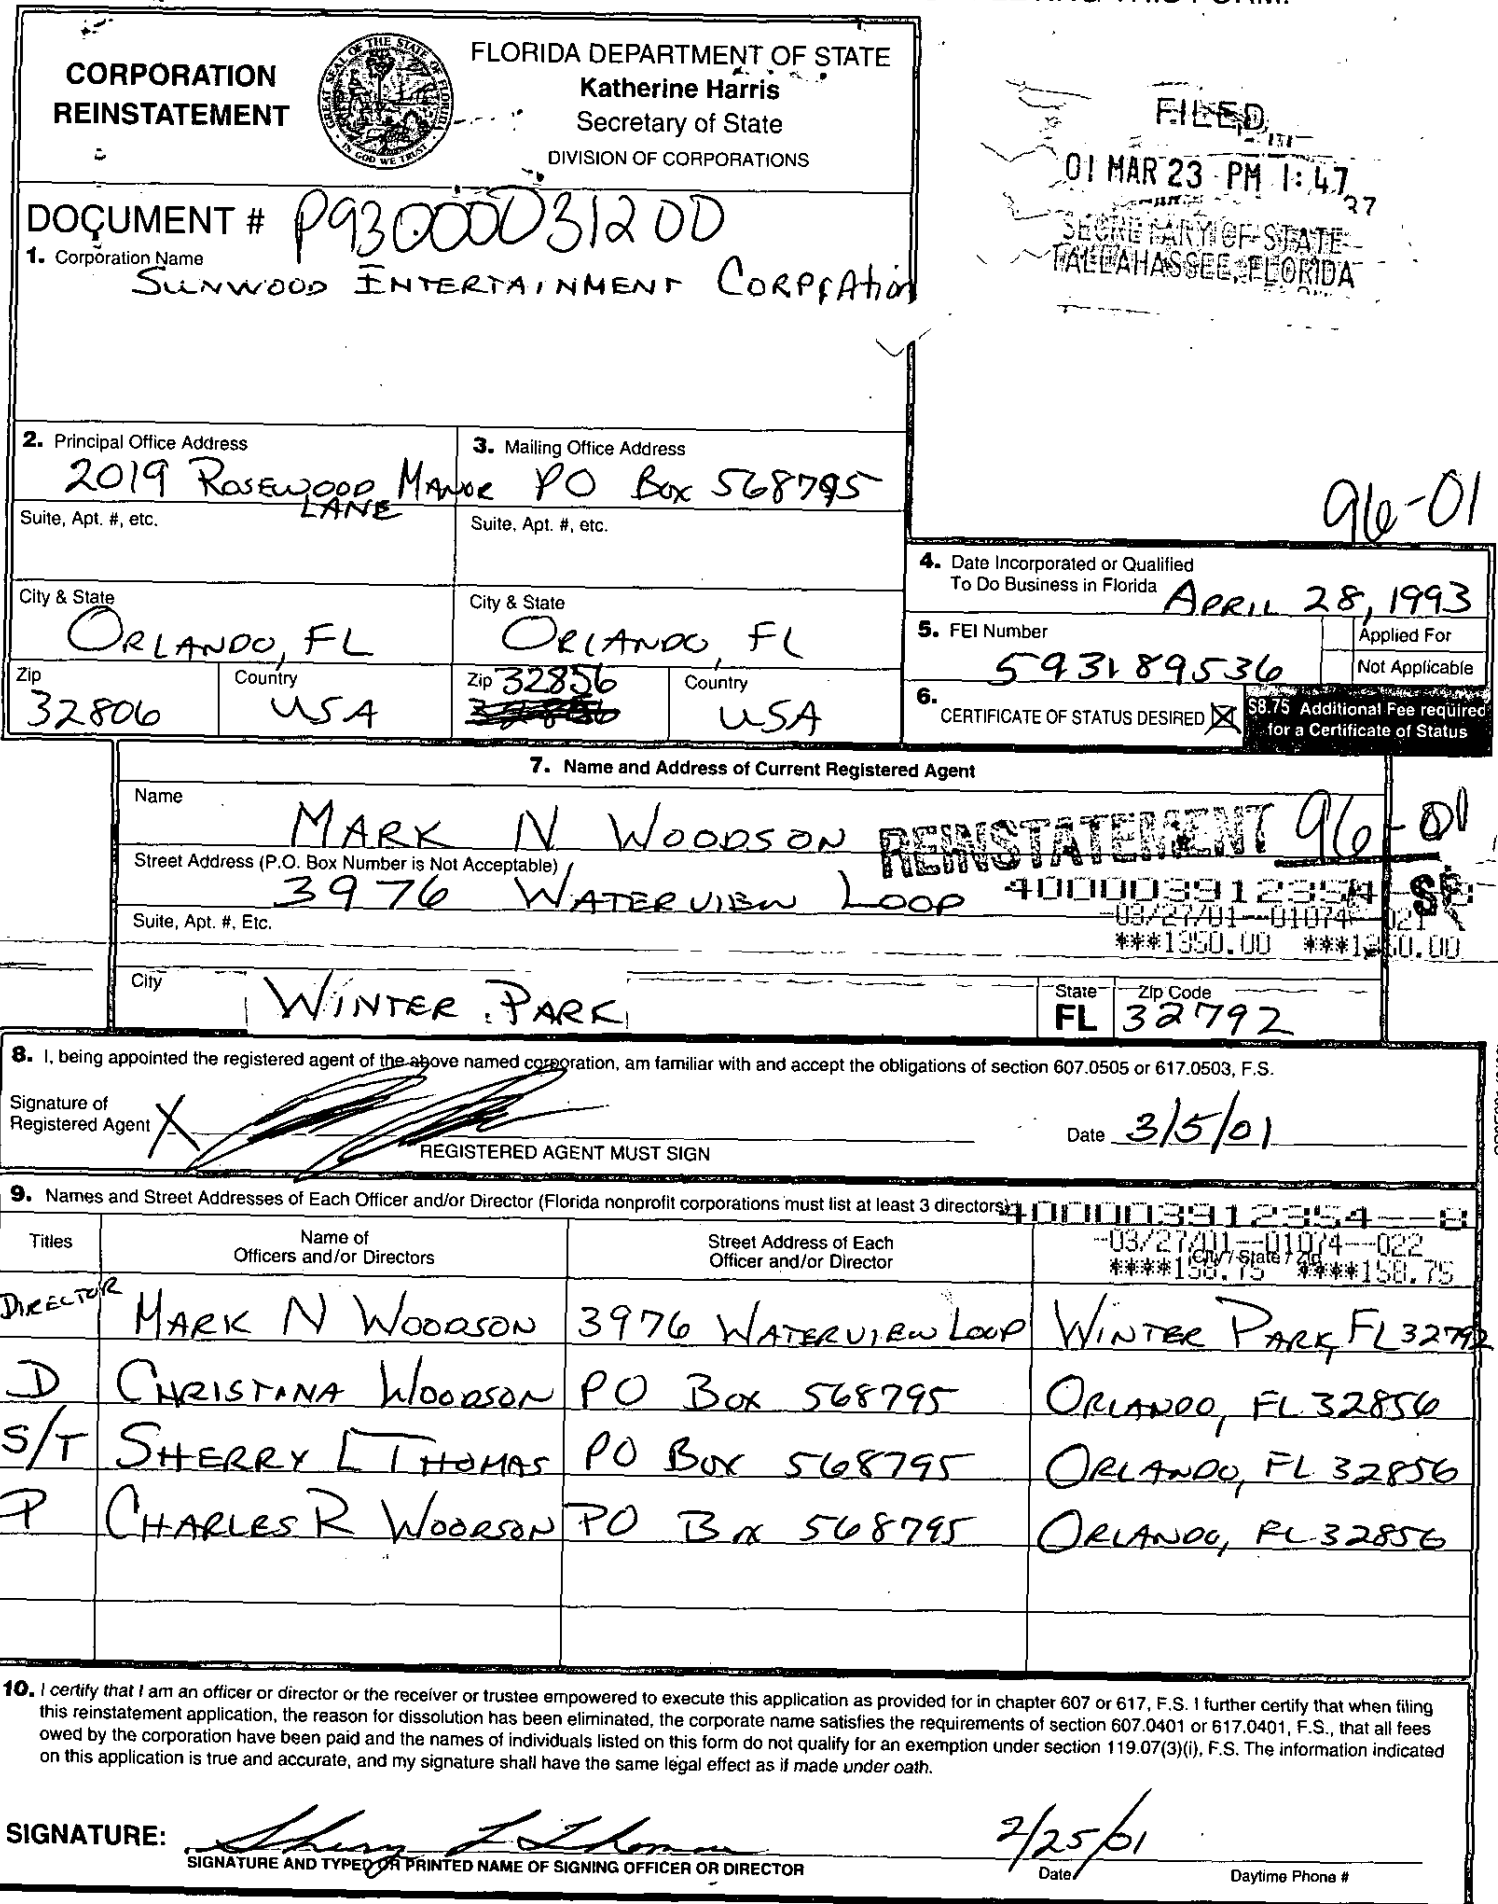 THIS FORM.
CORPORATION
REINSTATEMENT
GREAT SEAL OF THE STATE OF FLORIDA
IN GOD WE TRUST
FLORIDA DEPARTMENT OF STATE
Katherine Harris
Secretary of State
DIVISION OF CORPORATIONS
FILED
01 MAR 23 PM 1:47
SECRETARY OF STATE
TALLAHASSEE, FLORIDA
DOCUMENT # P93000031200
1. Corporation Name
SUNWOOD INTERTAINMENT CORPRATION
2. Principal Office Address
2019 ROSEWOOD MANOR
LANE
3. Mailing Office Address
PO BOX 568795
Suite, Apt. #, etc.
Suite, Apt. #, etc.
96-01
4. Date Incorporated or Qualified
To Do Business in Florida APRIL 28, 1993
City & State
ORLANDO, FL
City & State
ORLANDO, FL
5. FEI Number
593189536
Applied For
Not Applicable
Zip
32806
Country
USA
Zip 32856
Country
USA
6.
CERTIFICATE OF STATUS DESIRED X
$8.75 Additional Fee required
for a Certificate of Status
7. Name and Address of Current Registered Agent
Name
MARK N WOODSON
REINSTATEMENT 96-01
Street Address (P.O. Box Number is Not Acceptable)
3976 WATERVIEW LOOP
400003912354--8
-03/27/01--01074--021
***1350.00 ***1350.00
Suite, Apt. #, Etc.
City
WINTER PARK
State
FL
Zip Code
32792
8. I, being appointed the registered agent of the above named corporation, am familiar with and accept the obligations of section 607.0505 or 617.0503, F.S.
Signature of
Registered Agent X
REGISTERED AGENT MUST SIGN
Date 3/5/01
9. Names and Street Addresses of Each Officer and/or Director (Florida nonprofit corporations must list at least 3 directors)
400003912354--8
-03/27/01--01074--022
****158.75 ****158.75
Titles
Name of
Officers and/or Directors
Street Address of Each
Officer and/or Director
City / State / Zip
DIRECTOR MARK N WOODSON 3976 WATERVIEW LOOP WINTER PARK, FL 32792
D CHRISTINA WOODSON PO BOX 568795 ORLANDO, FL 32856
S/T SHERRY L THOMAS PO BOX 568795 ORLANDO, FL 32856
P CHARLES R WOODSON PO BOX 568795 ORLANDO, FL 32856
10. I certify that I am an officer or director or the receiver or trustee empowered to execute this application as provided for in chapter 607 or 617, F.S. I further certify that when filing
this reinstatement application, the reason for dissolution has been eliminated, the corporate name satisfies the requirements of section 607.0401 or 617.0401, F.S., that all fees
owed by the corporation have been paid and the names of individuals listed on this form do not qualify for an exemption under section 119.07(3)(i), F.S. The information indicated
on this application is true and accurate, and my signature shall have the same legal effect as if made under oath.
SIGNATURE: Sherry L Thomas
2/25/01
SIGNATURE AND TYPED OR PRINTED NAME OF SIGNING OFFICER OR DIRECTOR
Date
Daytime Phone #